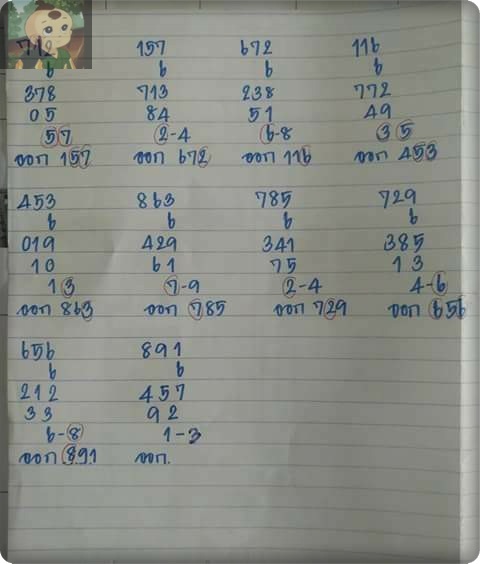 712 157 672 116
6 6 6 6
378 713 238 772
05 84 51 49
57 2-4 6-8 35
ออก 157 ออก 672 ออก 116 ออก 453
453 863 785 729
6 6 6 6
019 429 341 385
10 61 75 13
13 7-9 2-4 4-6
ออก 863 ออก 785 ออก 729 ออก 656
656 891
6 6
212 457
33 92
6-8 1-3
ออก 891 ออก.